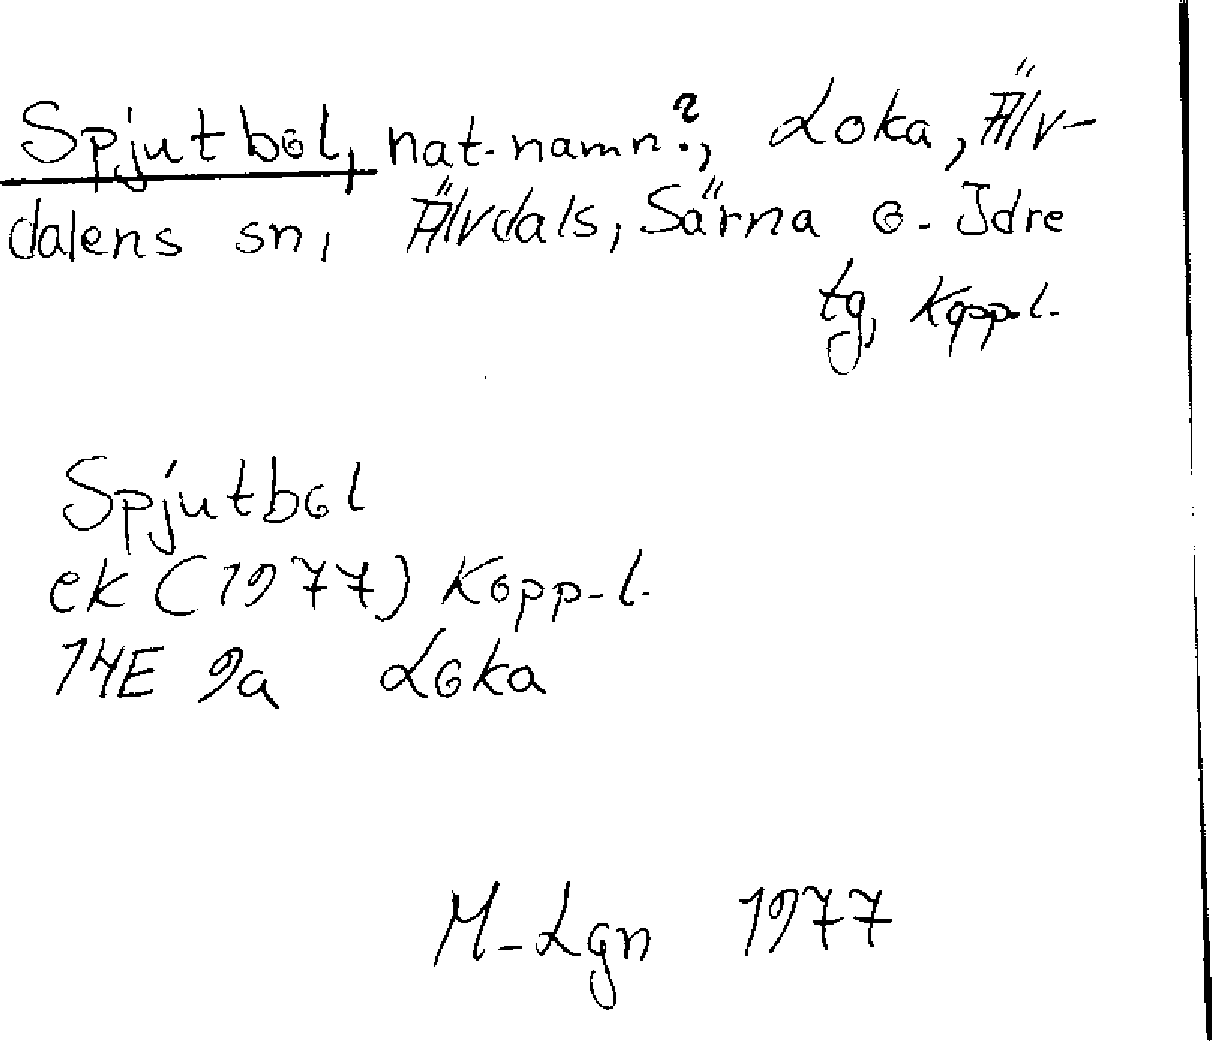 Spjutbol, nat.namn?, Loka, Älv-
dalens sn, Älvdals, Särna o. Idre
tg, Kopp.l.
Spjutbol
ek (1977) Kopp.l.
14E 9a Loka
M-Lgn 1977